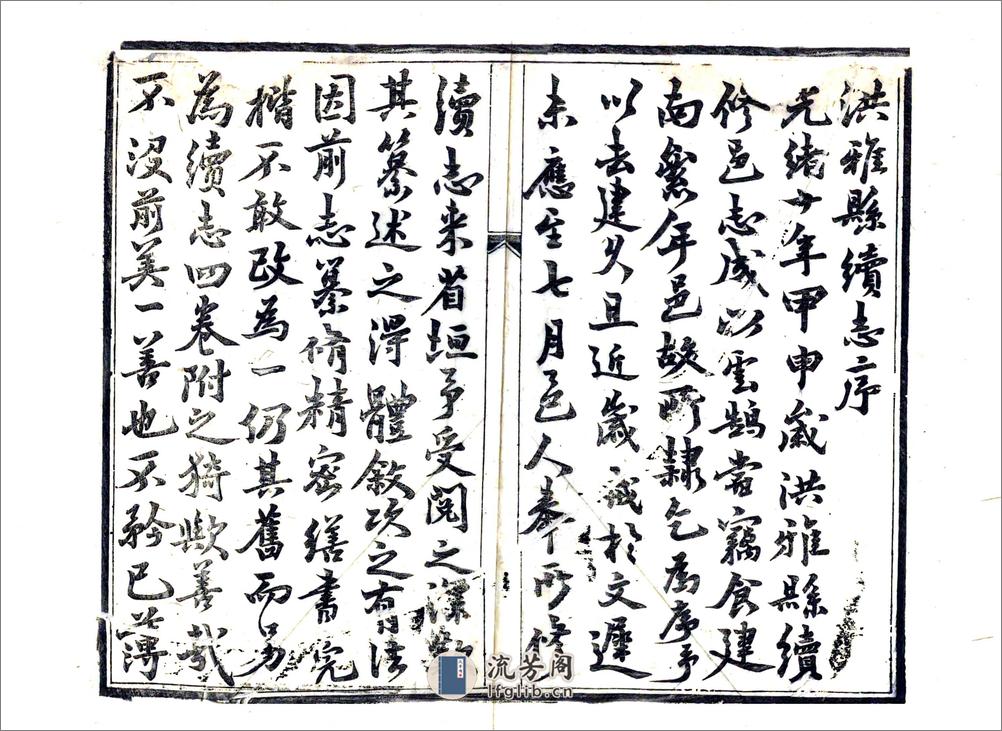 洪雅縣續志序
光緒十年甲申歲洪雅縣續
修邑志成以雲鵠嘗竊食建
南彙年邑故所隸乞為序予
以去建久且近歲戒於文遲
未應至七月邑人奉所修
續志来省垣予受閱之深
其纂述之得體敘次之有法
因前志纂脩精密繕書完
楷不敢改為一仍其舊而另
為續志四卷附之猗歟善哉
不没前美一善也不矜已薄
流芳阁
lfglib.cn